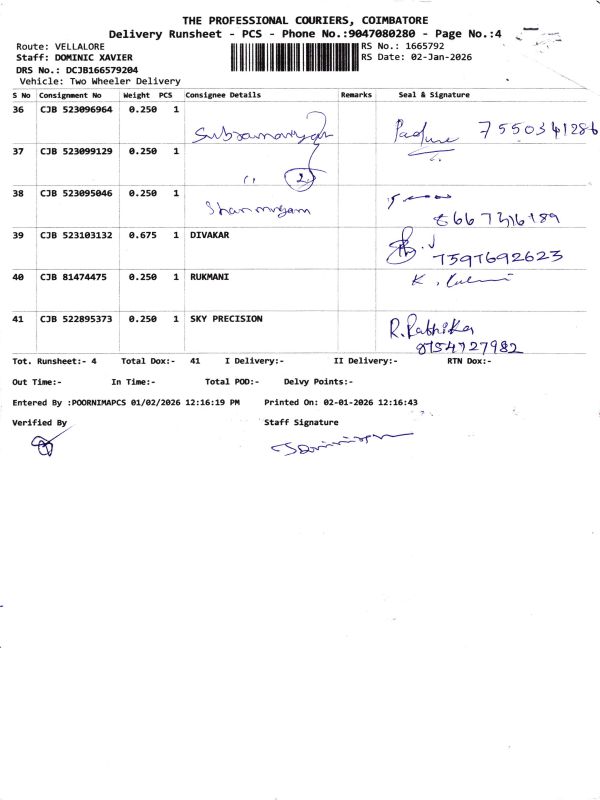 THE PROFESSIONAL COURIERS, COIMBATORE
Delivery Runsheet - PCS - Phone No.:9047080280 - Page No.:4
Route: VELLALORE
RS No.: 1665792
Staff: DOMINIC XAVIER
RS Date: 02-Jan-2026
DRS No.: DCJB166579204
Vehicle: Two Wheeler Delivery
S No Consignment No Weight PCS Consignee Details Remarks Seal & Signature
36 CJB 523096964 0.250 1
7550341286
37 CJB 523099129 0.250 1
" 2
38 CJB 523095046 0.250 1
Shanmugam
39 CJB 523103132 0.675 1 DIVAKAR
7597692623
40 CJB 81474475 0.250 1 RUKMANI
41 CJB 522895373 0.250 1 SKY PRECISION
R. Rathika
8754727982
Tot. Runsheet:- 4 Total Dox:- 41 I Delivery:- II Delivery:- RTN Dox:-
Out Time:- In Time:- Total POD:- Delvy Points:-
Entered By :POORNIMAPCS 01/02/2026 12:16:19 PM Printed On: 02-01-2026 12:16:43
Verified By Staff Signature